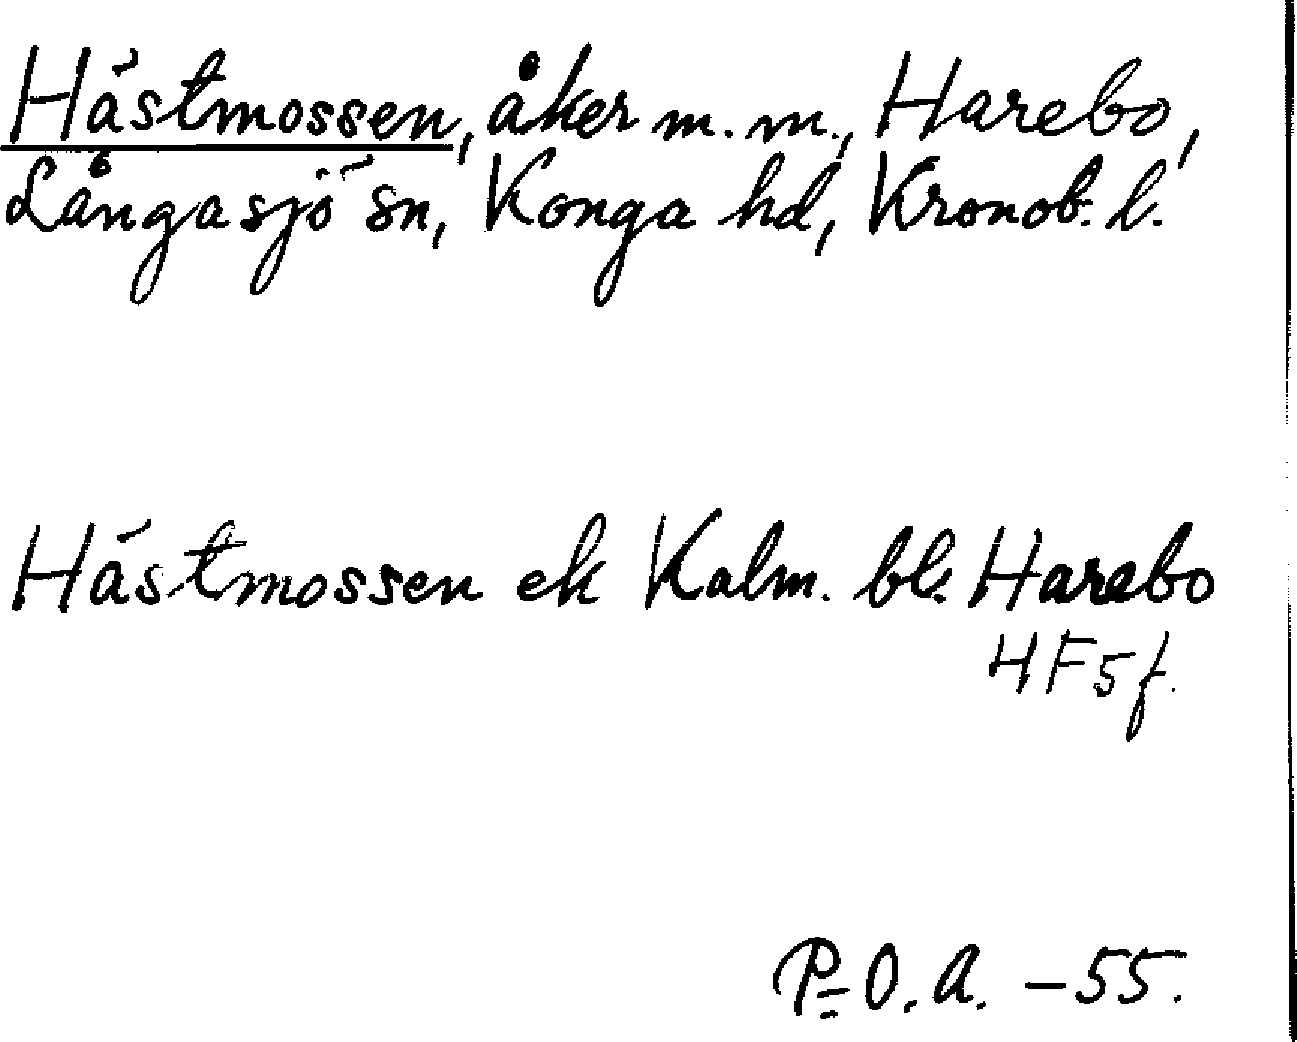 Hästmossen, åker m.m., Harebo,
Långasjö sn, Konga hd, Kronob. l.
Hästmossen ek Kalm. bl. Harebo
HF5f.
P-O.A. -55.